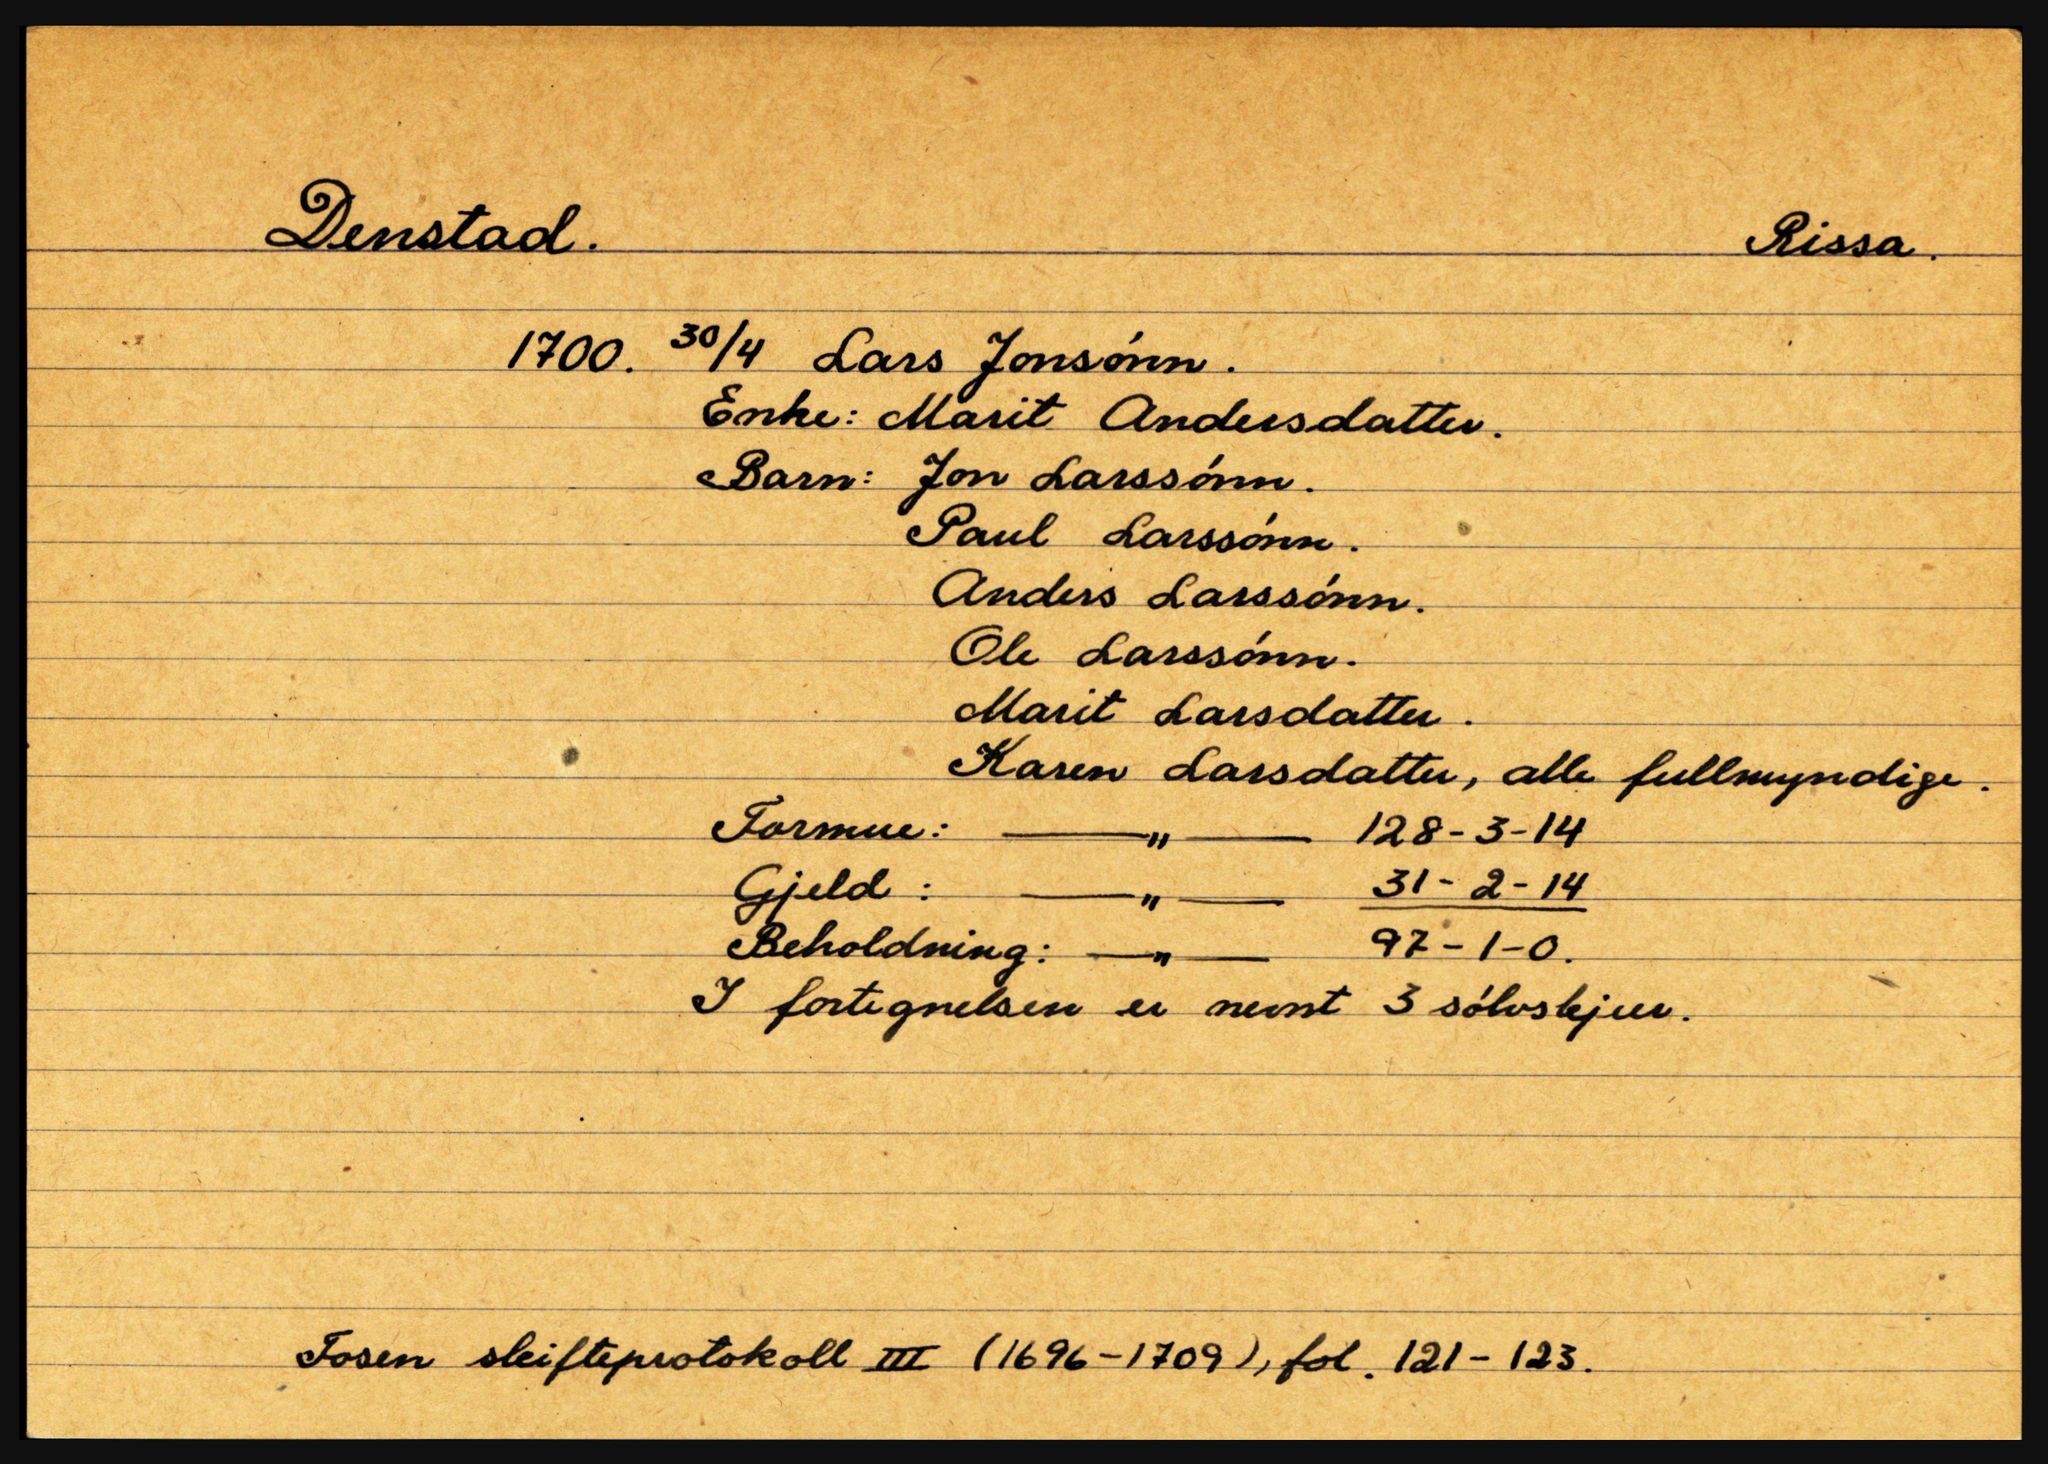 Denstad. Rissa.
1700. 30/4 Lars Jonsónn.
Enke: Marit Andersdatter.
Barn: Jon Larssónn.
Paul Larssónn.
Anders Larssónn.
Ole Larssónn.
Marit Larsdatter.
Karen Larsdatter, alle fullmyndige.
Formue: —"— 128-3-14
Gjeld: —"— 31-2-14
Beholdning: —"— 97-1-0.
I fortegnelsen er nevnt 3 sólvskjeer.
Fosen skifteprotokoll III (1696-1709), fol. 121-123.